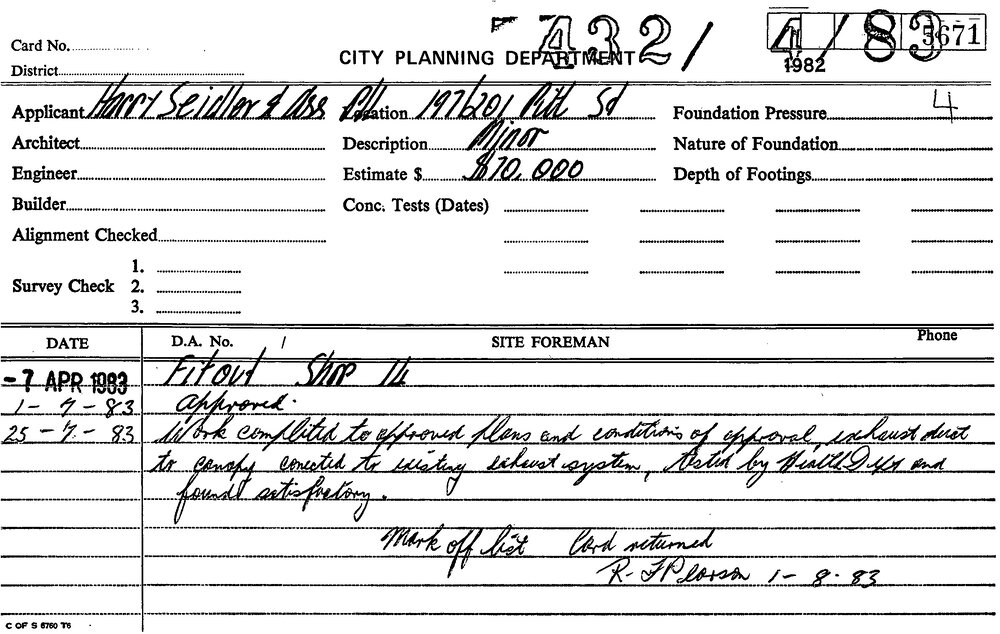 432 / 4 / 83 5671
Card No.
CITY PLANNING DEPARTMENT
1982
District
Applicant Harry Seidler & Ass P/L Location 197/201 Pitt St Foundation Pressure 4
Architect Description Minor Nature of Foundation
Engineer Estimate $ $70,000 Depth of Footings
Builder Conc. Tests (Dates)
Alignment Checked
1.
Survey Check 2.
3.
DATE D.A. No. / SITE FOREMAN Phone
-7 APR 1983 Fitout Shop 14
1-7-83 Approved.
25-7-83 Work complited to approved plans and conditions of approval, exhaust duct
to canopy conected to existing exhaust system, tested by Health Dept and
found satisfactory.
Mark off list Card returned
R. F Pearson 1-8-83
C OF S 6760 T6